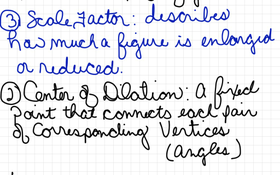 ③ Scale Factor: describes
how much a figure is enlarged
or reduced.
③ Center of Dilation: a fixed
Point that connects each pair
of Corresponding Vertices
(Angles)